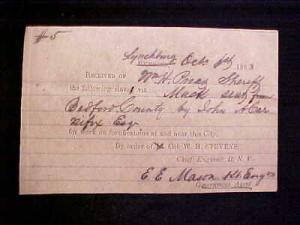 #5
Lynchburg Oct 6th 1863
RECEIVED OF Wm H. Sheriff
the following slave viz Mack sent from
Bedford County by John A Car
Esq
for work on fortifications at and near this City.
By order of Col. W. H. STEVENS
Chief Engineer D. N. V.
E E Mason Engr
Government Agent